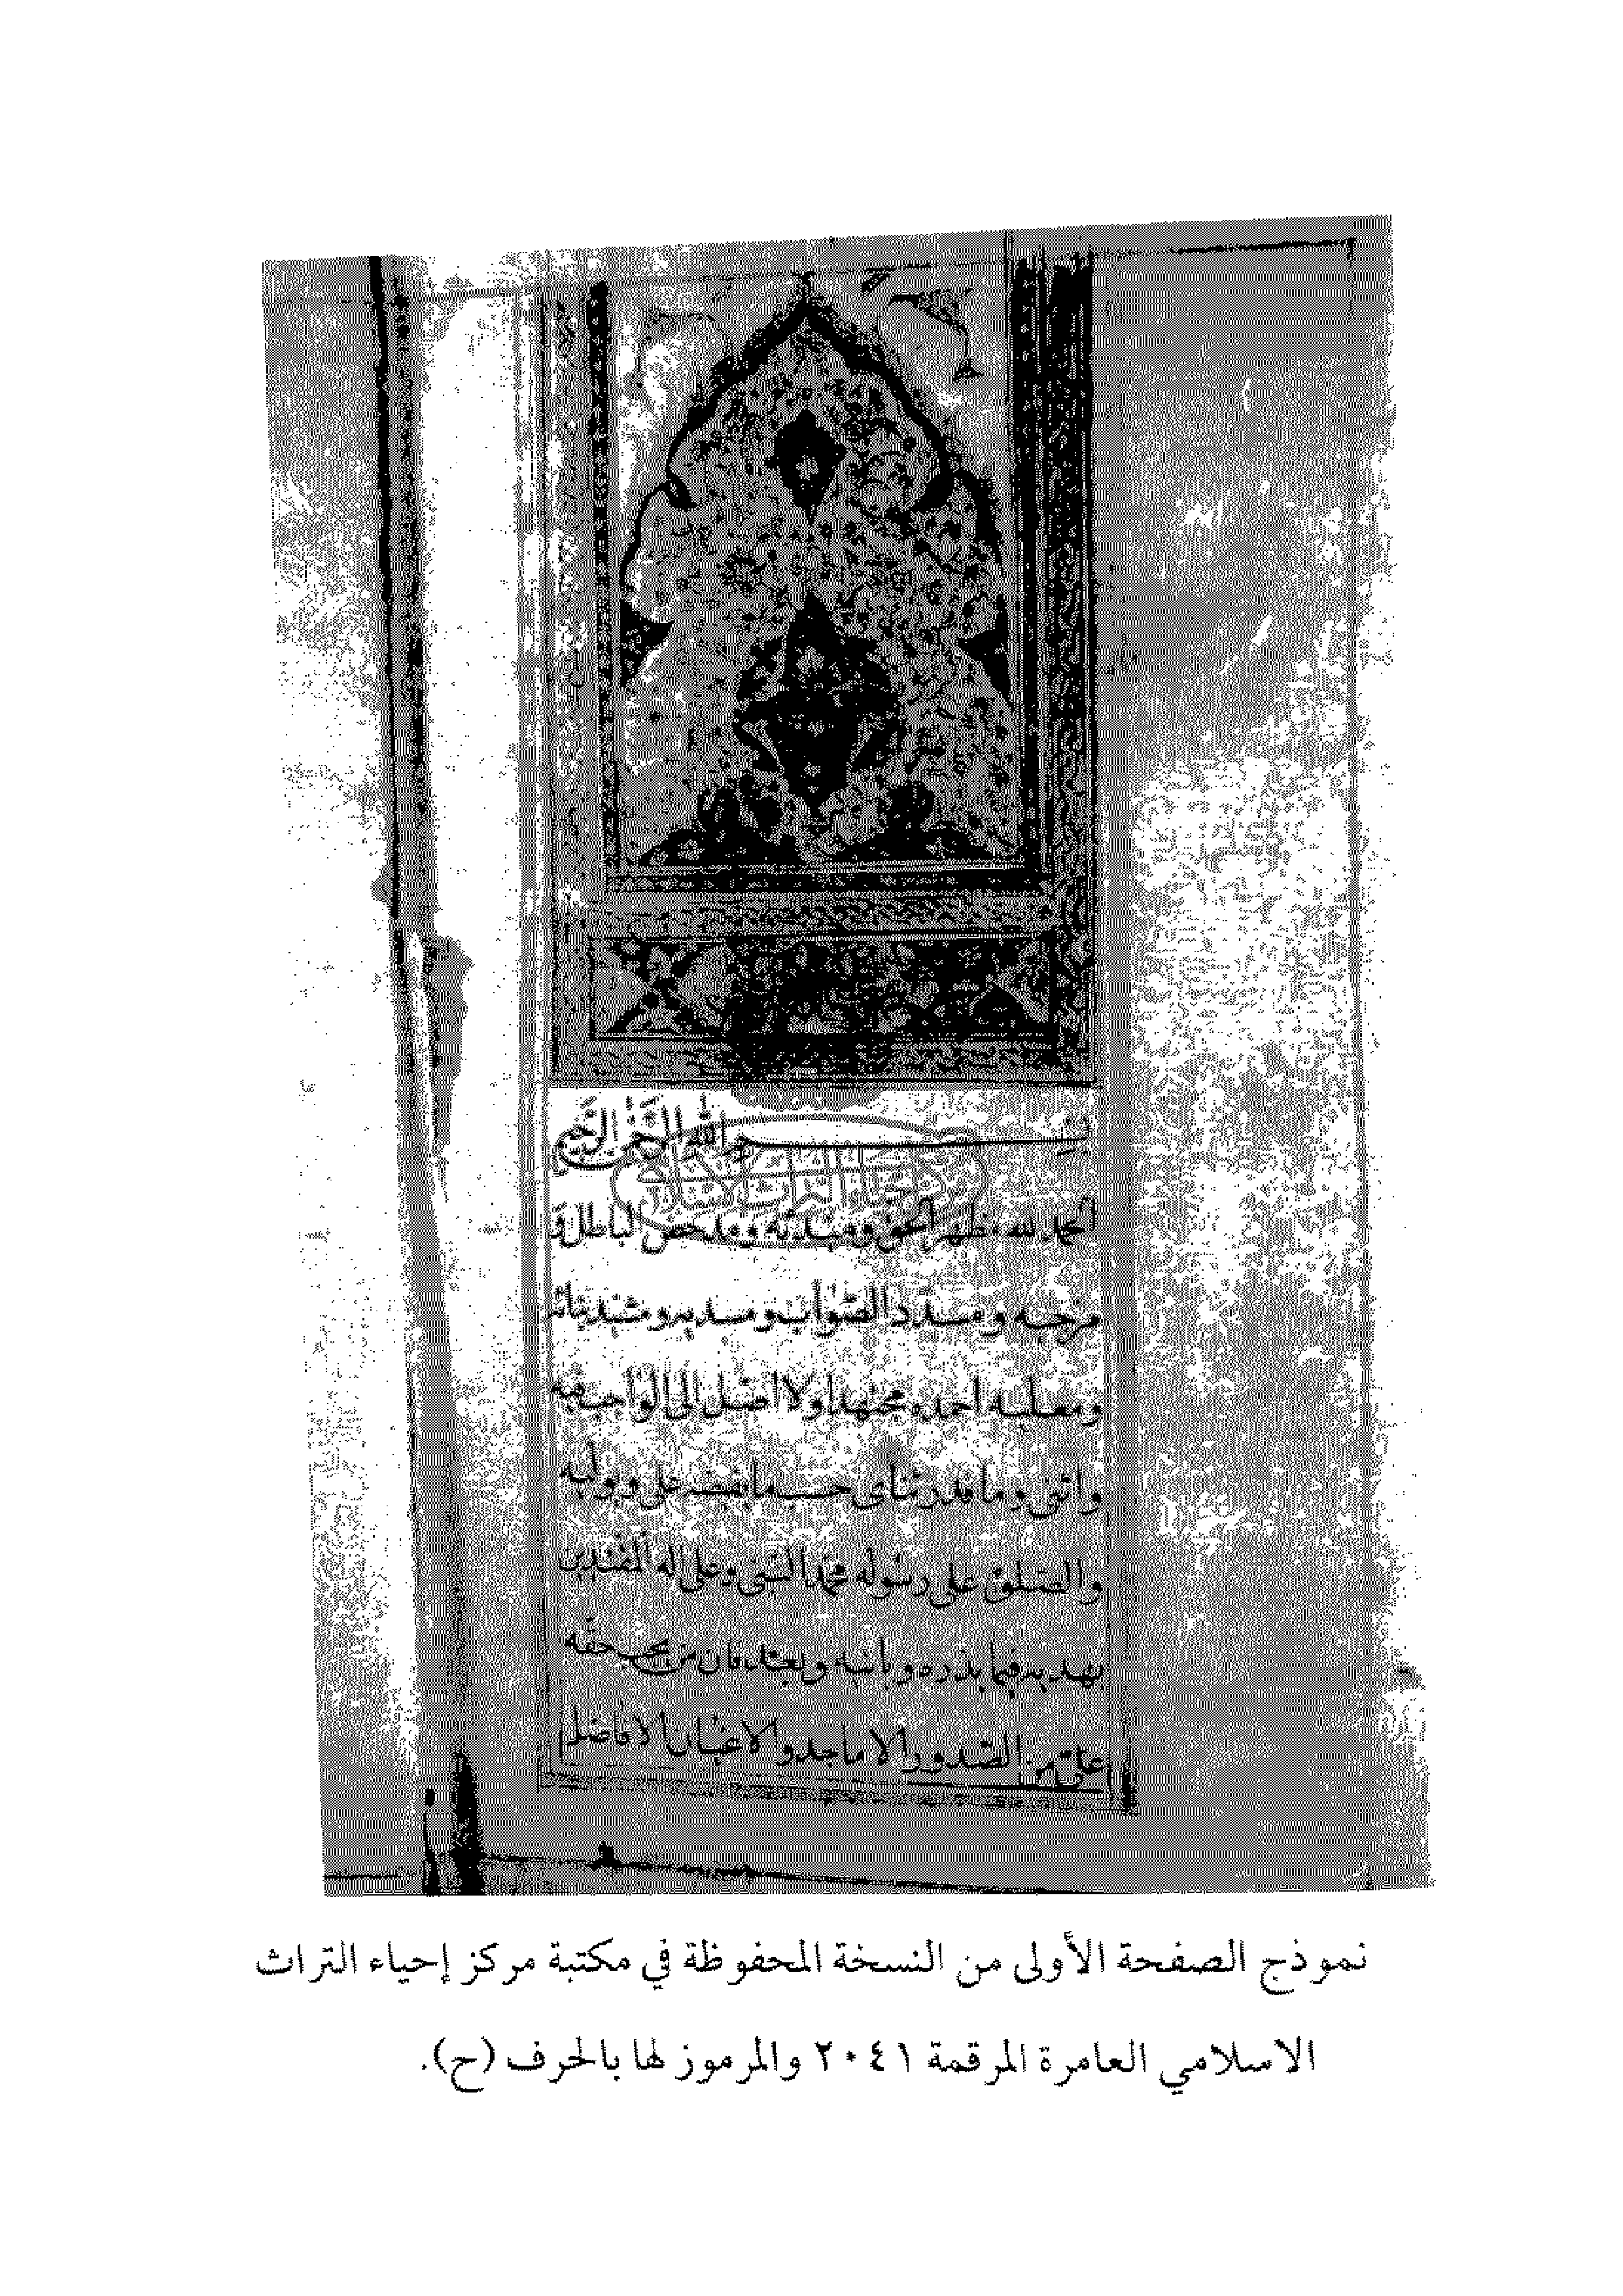 بسم الله الرحمن الرحيم
الحمد لله مظهر الحق ومبديه ومدحض الباطل و
مرجيه ومسدد الصواب ومسديه ومشيد بنائه
ومعليه أحمده مجتهدا ولا أصل إلى الواجب فيه
واثنى وما قدر ثنائى حسب ما يفيضه على ويوليه
والصلوة على رسوله محمد النبى وعلى اله المقتدين
بهديه فيما يذره وياتيه وبعد فان من يجب حقه
على من الصدور الاماجد والاعيان الافاضل
نموذج الصفحة الأولى من النسخة المحفوظة في مكتبة مركز إحياء التراث
الاسلامي العامرة المرقمة ٢٠٤١ والمرموز لها بالحرف (ح).